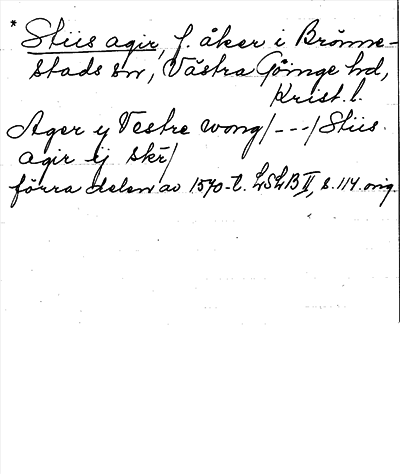 * Stiis agir, f. åker i Brönne-
stads sn, Västra Göinge hd,
Krist. l.
Ager y Vestre wong/---/Stiis.
agir ij skr/
förra delen av 1570-t. LSLB II, s. 114. orig.